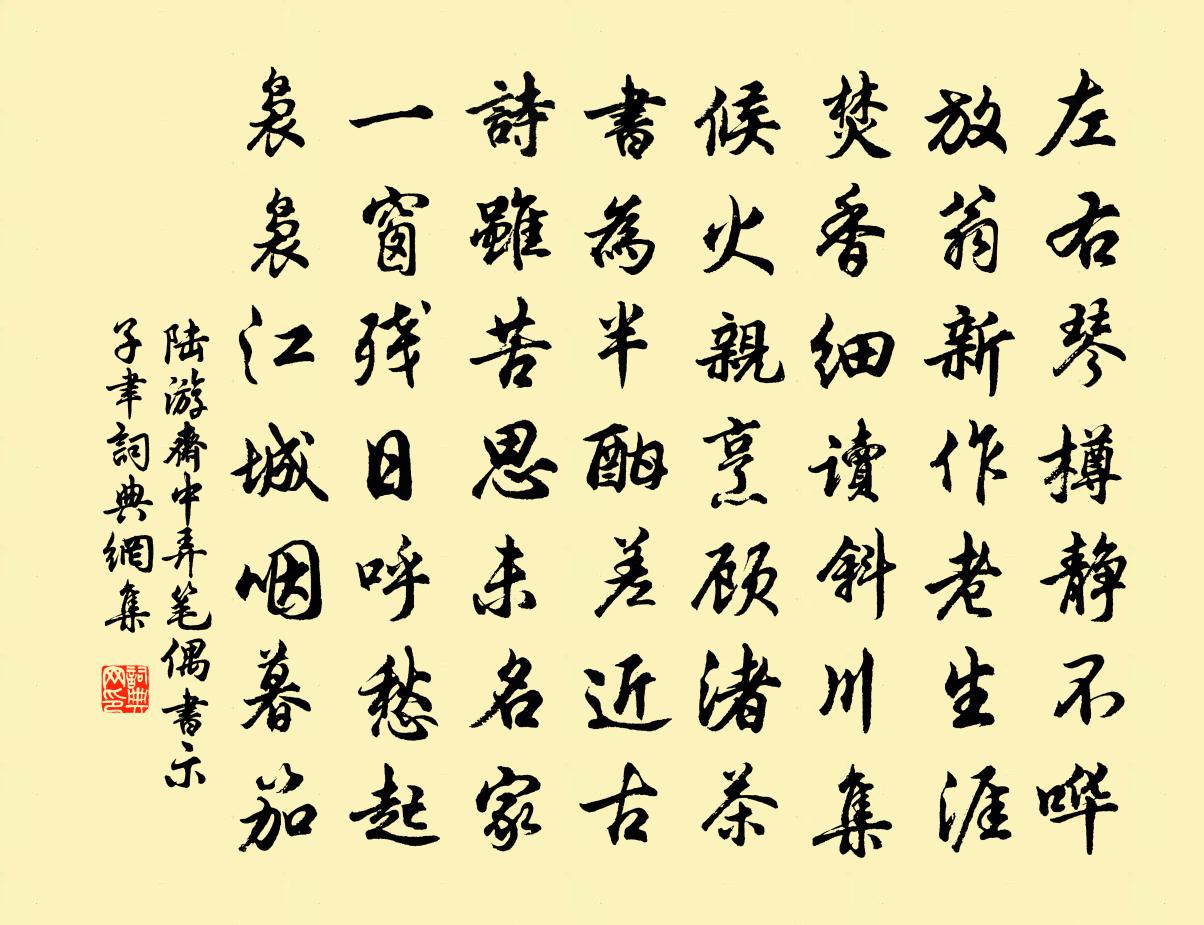 左右琴樽静不哗
放翁新作老生涯
焚香细读斜川集
候火親烹顾渚茶
書為半酣差近古
詩雖苦思未名家
一窗残日呼愁起
袅袅江城咽暮笳
陆游齋中弄笔偶書示
子聿詞典網集
詞典网印